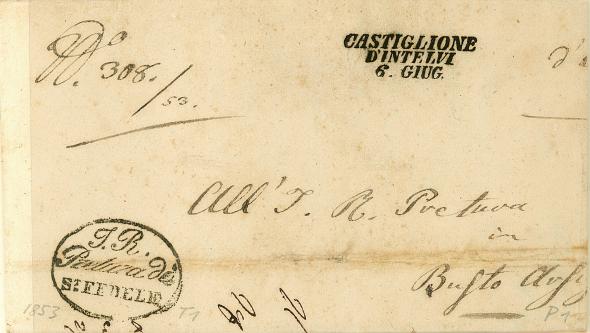 No. 308./53.
CASTIGLIONE
D'INTELVI
6. GIUG.
All' I. R. Pretura
in
Busto Arsi
I. R.
Pretura di
St. FEDELE
1853
T1
P1